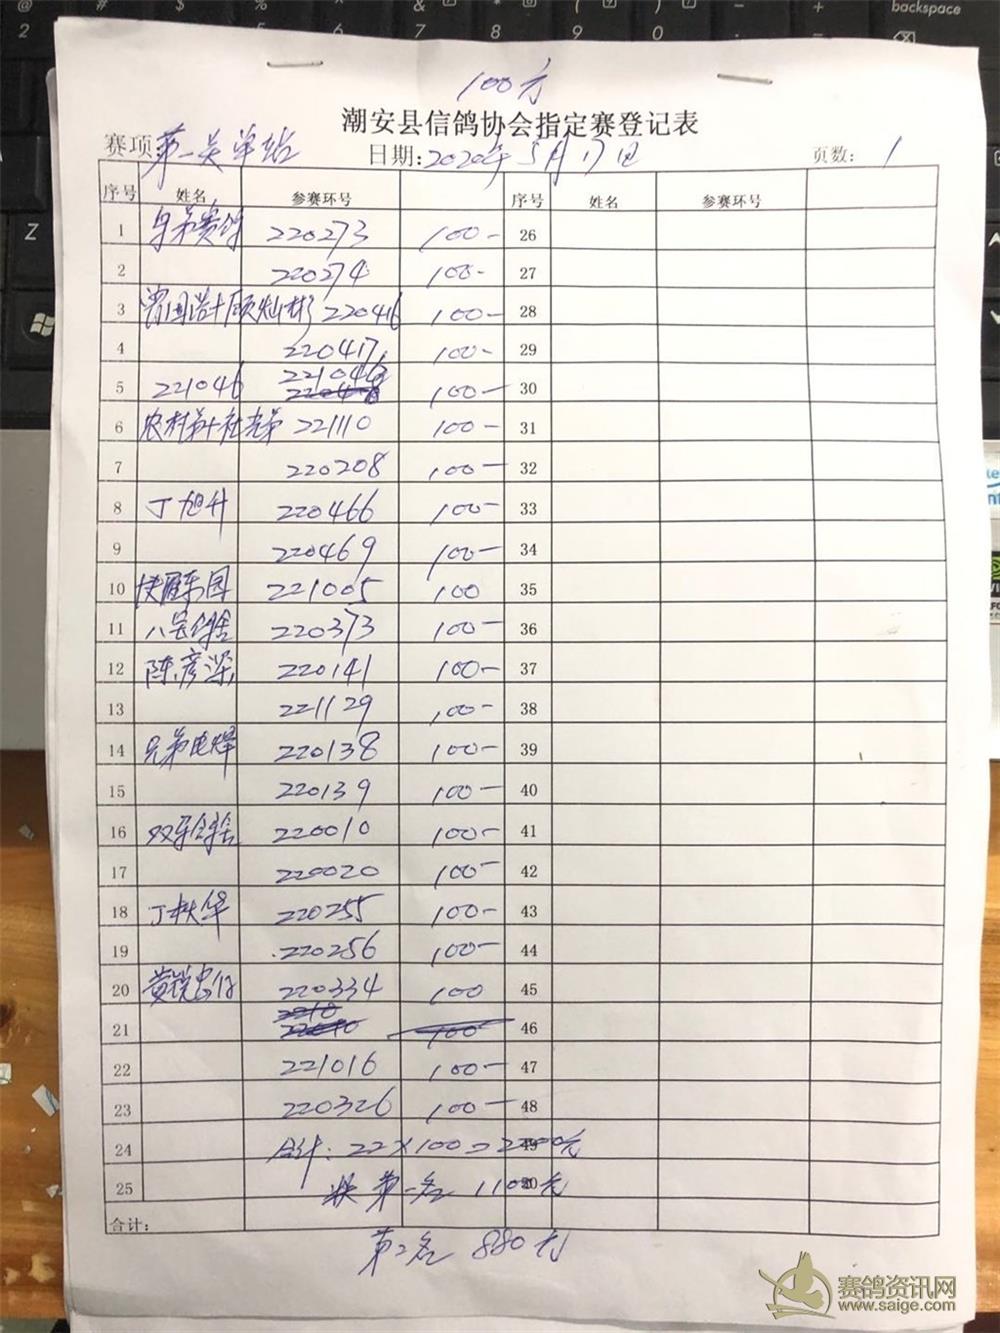 backspace
Z
100元
潮安县信鸽协会指定赛登记表
赛项 第一关单站 日期:2020年5月17日 页数: 1
序号 姓名 参赛环号 序号 姓名 参赛环号
1 220273 100- 26
2 220274 100- 27
3 220416 100- 28
4 220417 100- 29
5 221046 221046 100- 30
6 221110 100- 31
7 220208 100- 32
8 丁旭升 220466 100- 33
9 220469 100- 34
10 221005 100 35
11 八号鸽舍 220373 100- 36
12 陈彦深 220141 100- 37
13 221129 100- 38
14 兄弟电焊 220138 100- 39
15 220139 100- 40
16 双牙鸽舍 220010 100- 41
17 220020 100- 42
18 丁秋华 220255 100- 43
19 220256 100- 44
20 220334 100 45
21 100 46
22 221016 100- 47
23 220326 100- 48
24 合计: 22×100=2200元 49
25 第一名 1100元 50
合计:
第2名 880元
赛鸽资讯网
www.saige.com